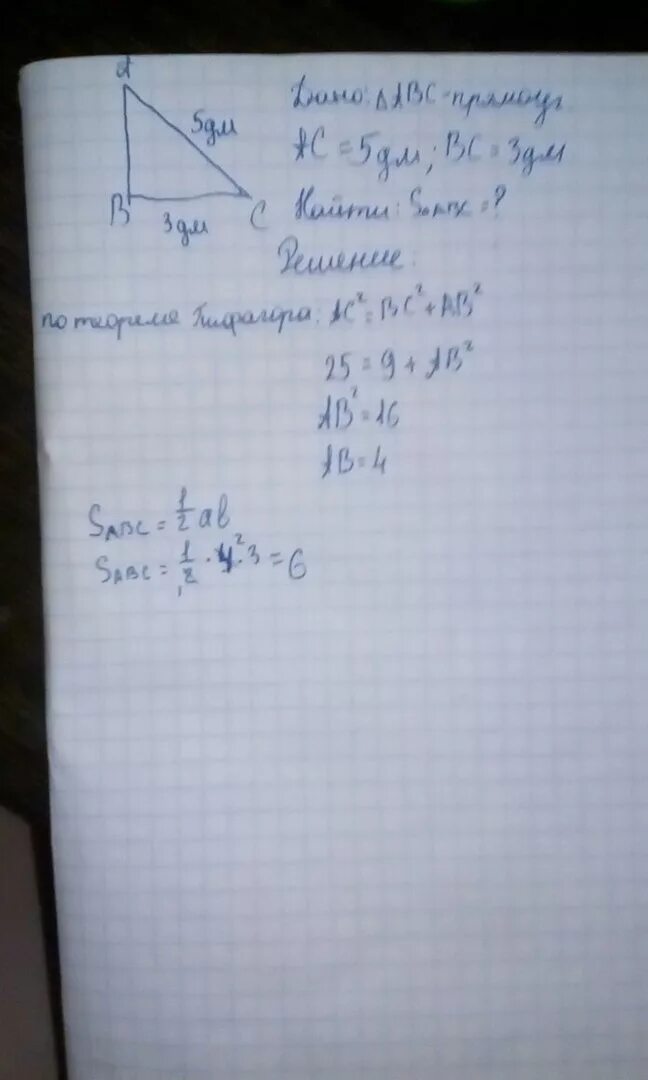 A
5дм
B
3дм
C
Дано: △ABC - прямоуг.
AC = 5дм; BC = 3дм
Найти: S△ABC = ?
Решение.
по теореме Пифагора: AC² = BC² + AB²
25 = 9 + AB²
AB² = 16
AB = 4
S_ABC = 1/2 ab
S_ABC = 1/2 · 4² · 3 = 6